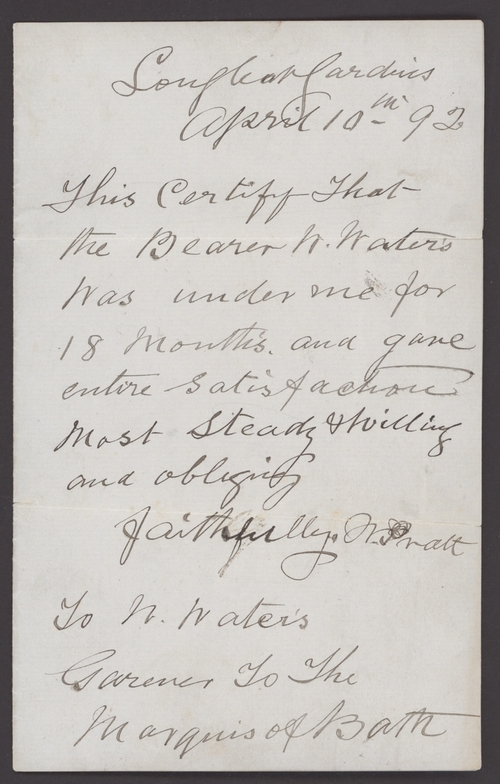 Longleat Gardins
April 10th 92
This Certify That
the Bearer W. Waters
Was under me for
18 Months. and gave
entire satisfaction
Most Steady & Willing
and obliging
faithfully. W. Pratt
To W. Waters
Garener To The
Marquis of Bath